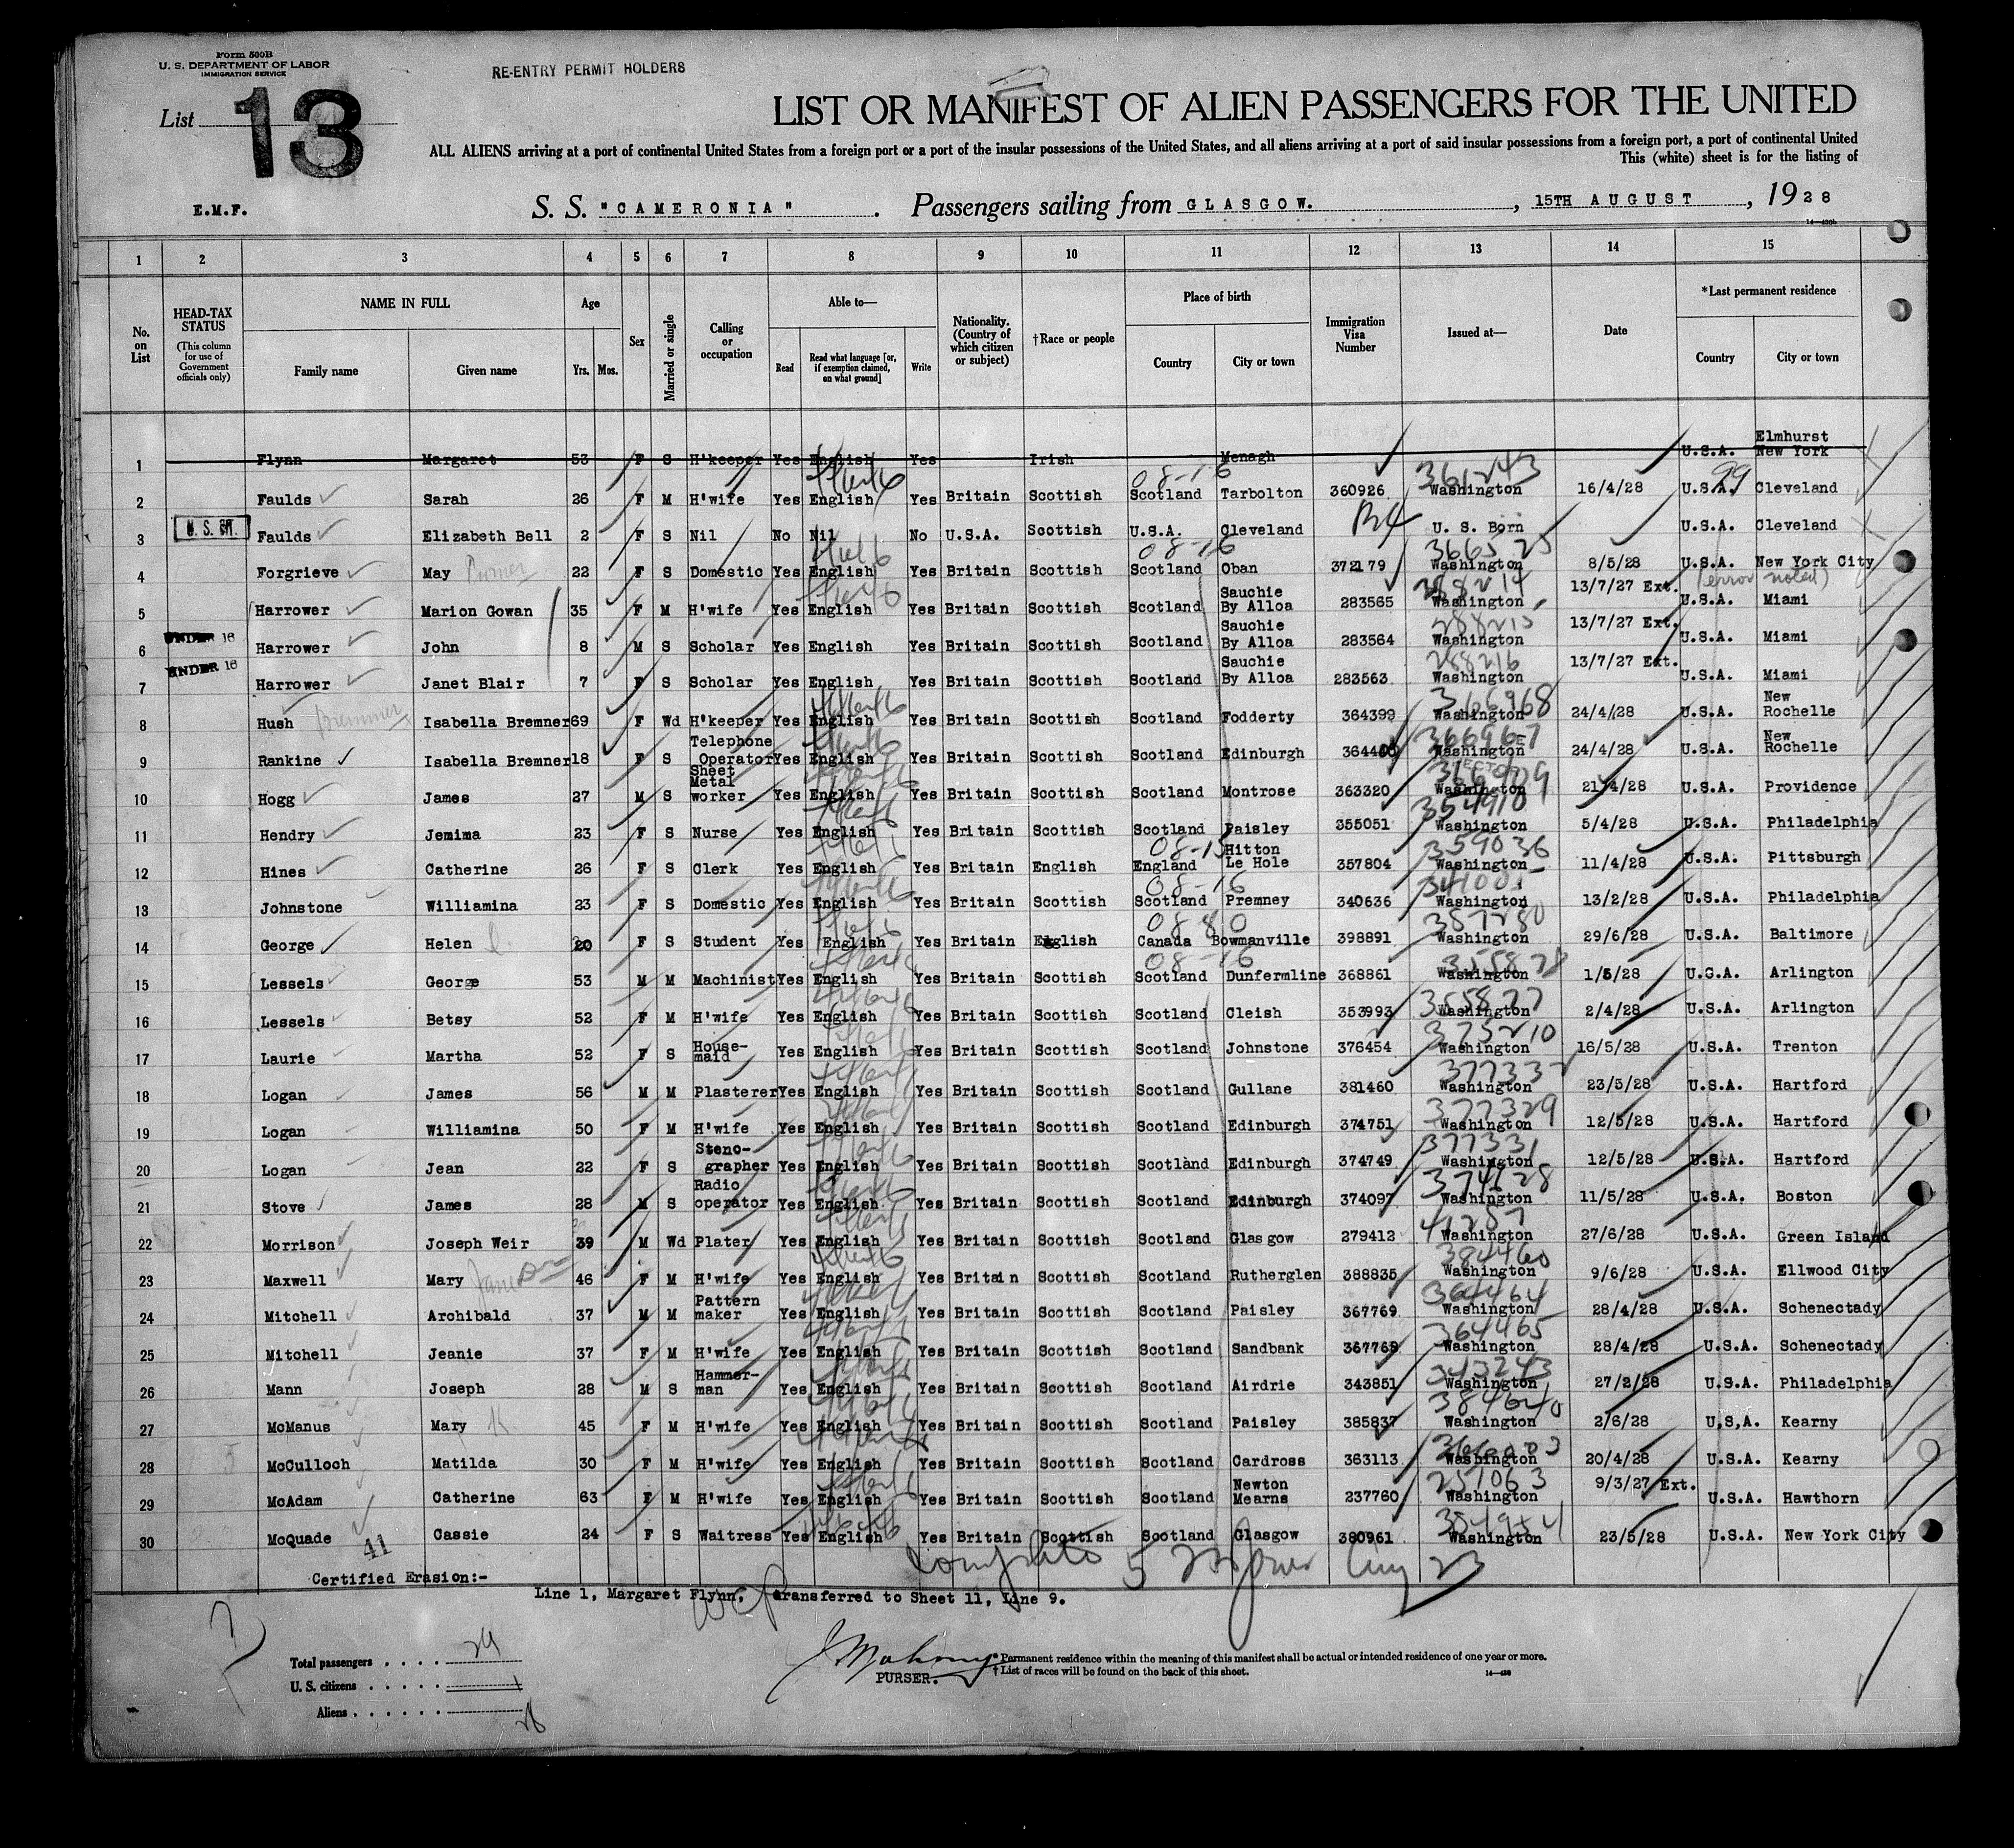 Form 500B
U. S. DEPARTMENT OF LABOR
IMMIGRATION SERVICE
RE-ENTRY PERMIT HOLDERS
List 13
LIST OR MANIFEST OF ALIEN PASSENGERS FOR THE UNITED
ALL ALIENS arriving at a port of continental United States from a foreign port or a port of the insular possessions of the United States, and all aliens arriving at a port of said insular possessions from a foreign port, a port of continental United
This (white) sheet is for the listing of
E.M.F.
S. S. "CAMERONIA" . Passengers sailing from GLASGOW. , 15TH AUGUST , 1928
1 2 3 4 5 6 7 8 9 10 11 12 13 14 15
No. on List
HEAD-TAX STATUS (This column for use of Government officials only)
NAME IN FULL Family name Given name
Age Yrs. Mos.
Sex
Married or single
Calling or occupation
Able to— Read Read what language [or, if exemption claimed, on what ground] Write
Nationality. (Country of which citizen or subject)
†Race or people
Place of birth Country City or town
Immigration Visa Number
Issued at—
Date
*Last permanent residence Country City or town
1 Flynn Margaret 53 F S H'keeper Yes English Yes Irish Menagh U.S.A. Elmhurst New York
2 Faulds Sarah 26 F M H'wife Yes English Yes Britain Scottish Scotland Tarbolton 360926 Washington 16/4/28 U.S.A. Cleveland
3 U. S. CIT. Faulds Elizabeth Bell 2 F S Nil No Nil No U.S.A. Scottish U.S.A. Cleveland U. S. Born U.S.A. Cleveland
4 Forgrieve May 22 F S Domestic Yes English Yes Britain Scottish Scotland Oban 372179 366525 Washington 8/5/28 U.S.A. New York City
(error noted)
5 Harrower Marion Gowan 35 F M H'wife Yes English Yes Britain Scottish Scotland Sauchie By Alloa 283565 288214 Washington 13/7/27 Ext. U.S.A. Miami
6 UNDER 16 Harrower John 8 M S Scholar Yes English Yes Britain Scottish Scotland Sauchie By Alloa 283564 288215 Washington 13/7/27 Ext. U.S.A. Miami
7 UNDER 16 Harrower Janet Blair 7 F S Scholar Yes English Yes Britain Scottish Scotland Sauchie By Alloa 283563 288216 Washington 13/7/27 Ext. U.S.A. Miami
8 Hush Bremner Isabella Bremner 69 F Wd H'keeper Yes English Yes Britain Scottish Scotland Fodderty 364399 366968 Washington 24/4/28 U.S.A. New Rochelle
9 Rankine Isabella Bremner 18 F S Telephone Operator Yes English Yes Britain Scottish Scotland Edinburgh 364400 366967 Washington 24/4/28 U.S.A. New Rochelle
10 Hogg James 27 M S Sheet Metal worker Yes English Yes Britain Scottish Scotland Montrose 363320 Washington 21/4/28 U.S.A. Providence
11 Hendry Jemima 23 F S Nurse Yes English Yes Britain Scottish Scotland Paisley 355051 354910 Washington 5/4/28 U.S.A. Philadelphia
12 Hines Catherine 26 F S Clerk Yes English Yes Britain English England Hitton Le Hole 357804 359036 Washington 11/4/28 U.S.A. Pittsburgh
13 Johnstone Williamina 23 F S Domestic Yes English Yes Britain Scottish Scotland Premney 340636 Washington 13/2/28 U.S.A. Philadelphia
14 George Helen 20 F S Student Yes English Yes Britain English Canada Bowmanville 398891 387280 Washington 29/6/28 U.S.A. Baltimore
15 Lessels George 53 M M Machinist Yes English Yes Britain Scottish Scotland Dunfermline 368861 355878 Washington 1/5/28 U.G.A. Arlington
16 Lessels Betsy 52 F M H'wife Yes English Yes Britain Scottish Scotland Cleish 353993 355877 Washington 2/4/28 U.S.A. Arlington
17 Laurie Martha 52 F S House-maid Yes English Yes Britain Scottish Scotland Johnstone 376454 375210 Washington 16/5/28 U.S.A. Trenton
18 Logan James 56 M M Plasterer Yes English Yes Britain Scottish Scotland Gullane 381460 377332 Washington 23/5/28 U.S.A. Hartford
19 Logan Williamina 50 F M H'wife Yes English Yes Britain Scottish Scotland Edinburgh 374751 377329 Washington 12/5/28 U.S.A. Hartford
20 Logan Jean 22 F S Steno-grapher Yes English Yes Britain Scottish Scotland Edinburgh 374749 377331 Washington 12/5/28 U.S.A. Hartford
21 Stove James 28 M S Radio operator Yes English Yes Britain Scottish Scotland Edinburgh 374097 374628 Washington 11/5/28 U.S.A. Boston
22 Morrison Joseph Weir 39 M Wd Plater Yes English Yes Britain Scottish Scotland Glasgow 279412 Washington 27/6/28 U.S.A. Green Island
23 Maxwell Mary 46 F M H'wife Yes English Yes Britain Scottish Scotland Rutherglen 388835 384460 Washington 9/6/28 U.S.A. Ellwood City
24 Mitchell Archibald 37 M M Pattern maker Yes English Yes Britain Scottish Scotland Paisley 367769 364464 Washington 28/4/28 U.S.A. Schenectady
25 Mitchell Jeanie 37 F M H'wife Yes English Yes Britain Scottish Scotland Sandbank 367768 364465 Washington 28/4/28 U.S.A. Schenectady
26 Mann Joseph 28 M S Hammer-man Yes English Yes Britain Scottish Scotland Airdrie 343851 343243 Washington 27/2/28 U.S.A. Philadelphia
27 McManus Mary K 45 F M H'wife Yes English Yes Britain Scottish Scotland Paisley 385837 384640 Washington 2/6/28 U,S,A. Kearny
28 McCulloch Matilda 30 F M H'wife Yes English Yes Britain Scottish Scotland Cardross 363113 Washington 20/4/28 U.S.A. Kearny
29 McAdam Catherine 63 F M H'wife Yes English Yes Britain Scottish Scotland Newton Mearns 237760 251063 Washington 9/3/27 Ext. U.S.A. Hawthorn
30 McQuade Cassie 24 F S Waitress Yes English Yes Britain Scottish Scotland Glasgow 380961 Washington 23/5/28 U.S.A. New York City
41
Certified Erasion:-
Line 1, Margaret Flynn, transferred to Sheet 11, Line 9.
Total passengers . . . . 29
U. S. citizens . . . . . . 1
Aliens . . . . . . 28
J Mahony
PURSER.
* Permanent residence within the meaning of this manifest shall be actual or intended residence of one year or more.
† List of races will be found on the back of this sheet.